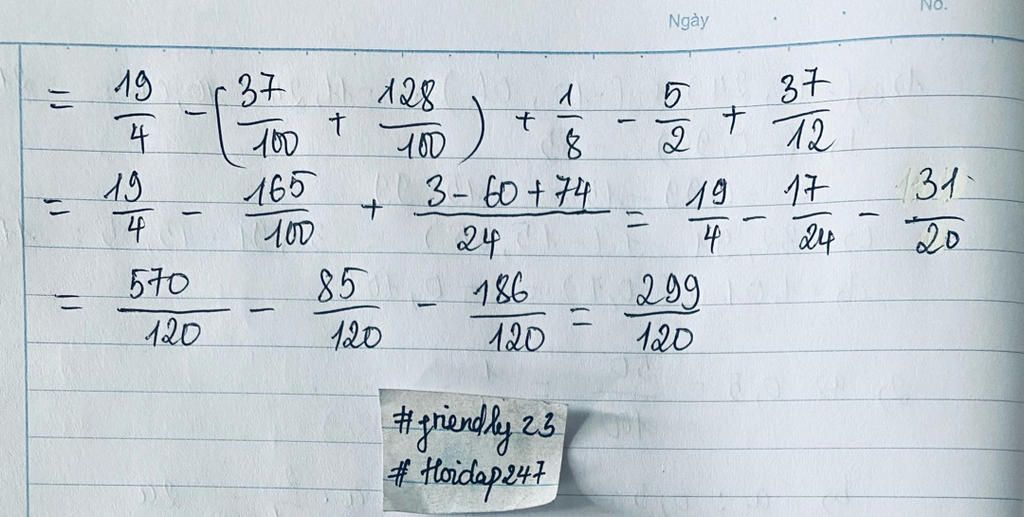 Ngày No.
= 19/4 - (37/100 + 128/100) + 1/8 - 5/2 + 37/12
= 19/4 - 165/100 + (3 - 60 + 74)/24 = 19/4 - 17/24 - 31/20
= 570/120 - 85/120 - 186/120 = 299/120
#friendly 23
# Hoidap247